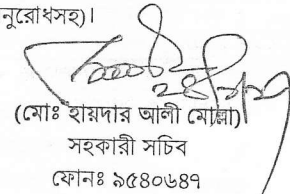 নুরোধসহ)।
(মোঃ হায়দার আলী মোল্লা)
সহকারী সচিব
ফোনঃ ৯৫৪০৬৪৭